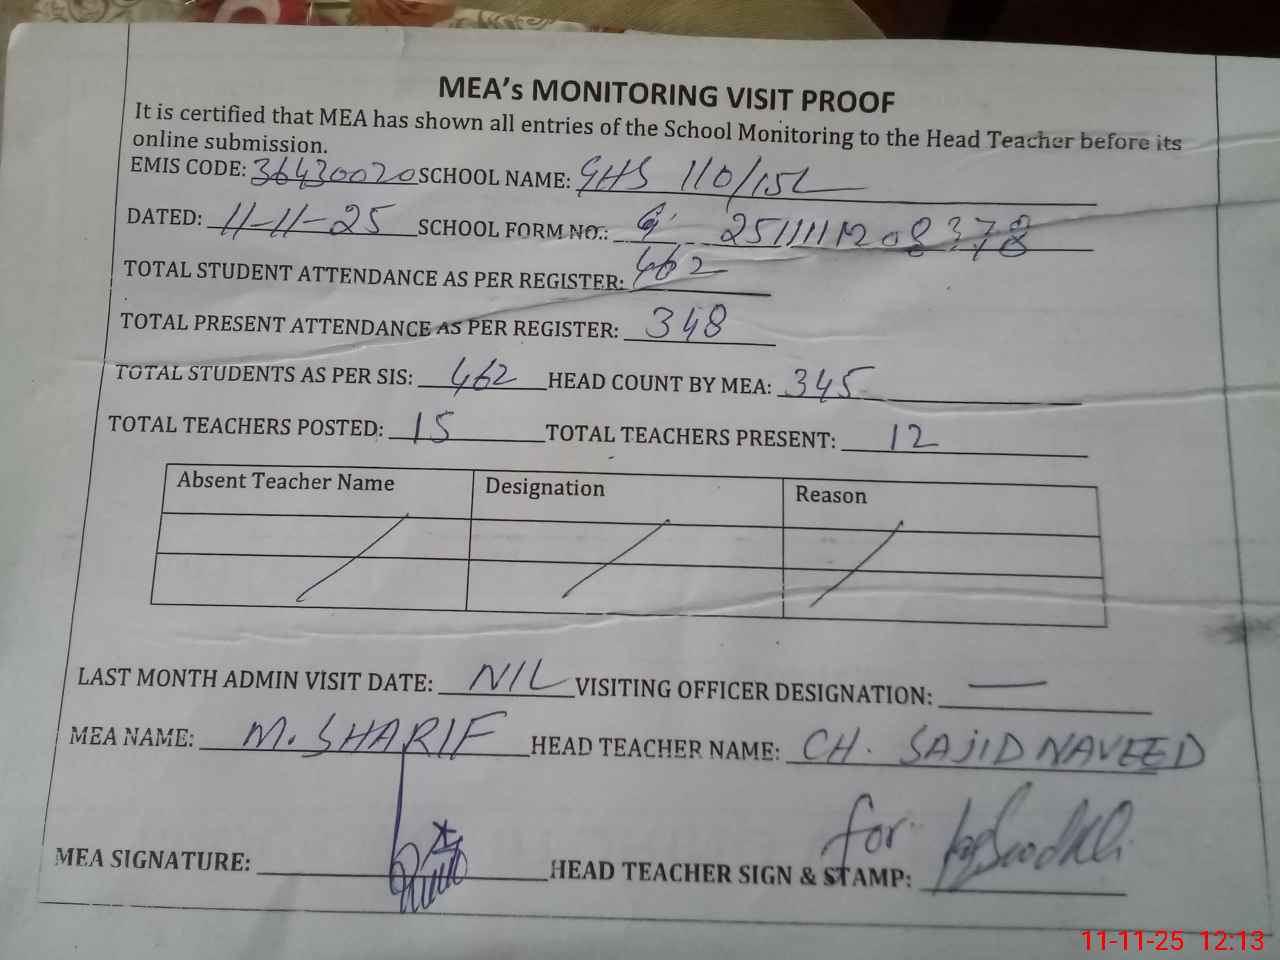 MEA's MONITORING VISIT PROOF
It is certified that MEA has shown all entries of the School Monitoring to the Head Teacher before its
online submission.
EMIS CODE: 36430020 SCHOOL NAME: GHS 110/15L
DATED: 11-11-25 SCHOOL FORM NO.:
TOTAL STUDENT ATTENDANCE AS PER REGISTER: 462
TOTAL PRESENT ATTENDANCE AS PER REGISTER: 348
TOTAL STUDENTS AS PER SIS: 462 HEAD COUNT BY MEA: 345
TOTAL TEACHERS POSTED: 15 TOTAL TEACHERS PRESENT: 12
Absent Teacher Name Designation Reason
LAST MONTH ADMIN VISIT DATE: NIL VISITING OFFICER DESIGNATION: —
MEA NAME: M. SHARIF HEAD TEACHER NAME: CH. SAJID NAVEED
MEA SIGNATURE: HEAD TEACHER SIGN & STAMP: for
11-11-25 12:13